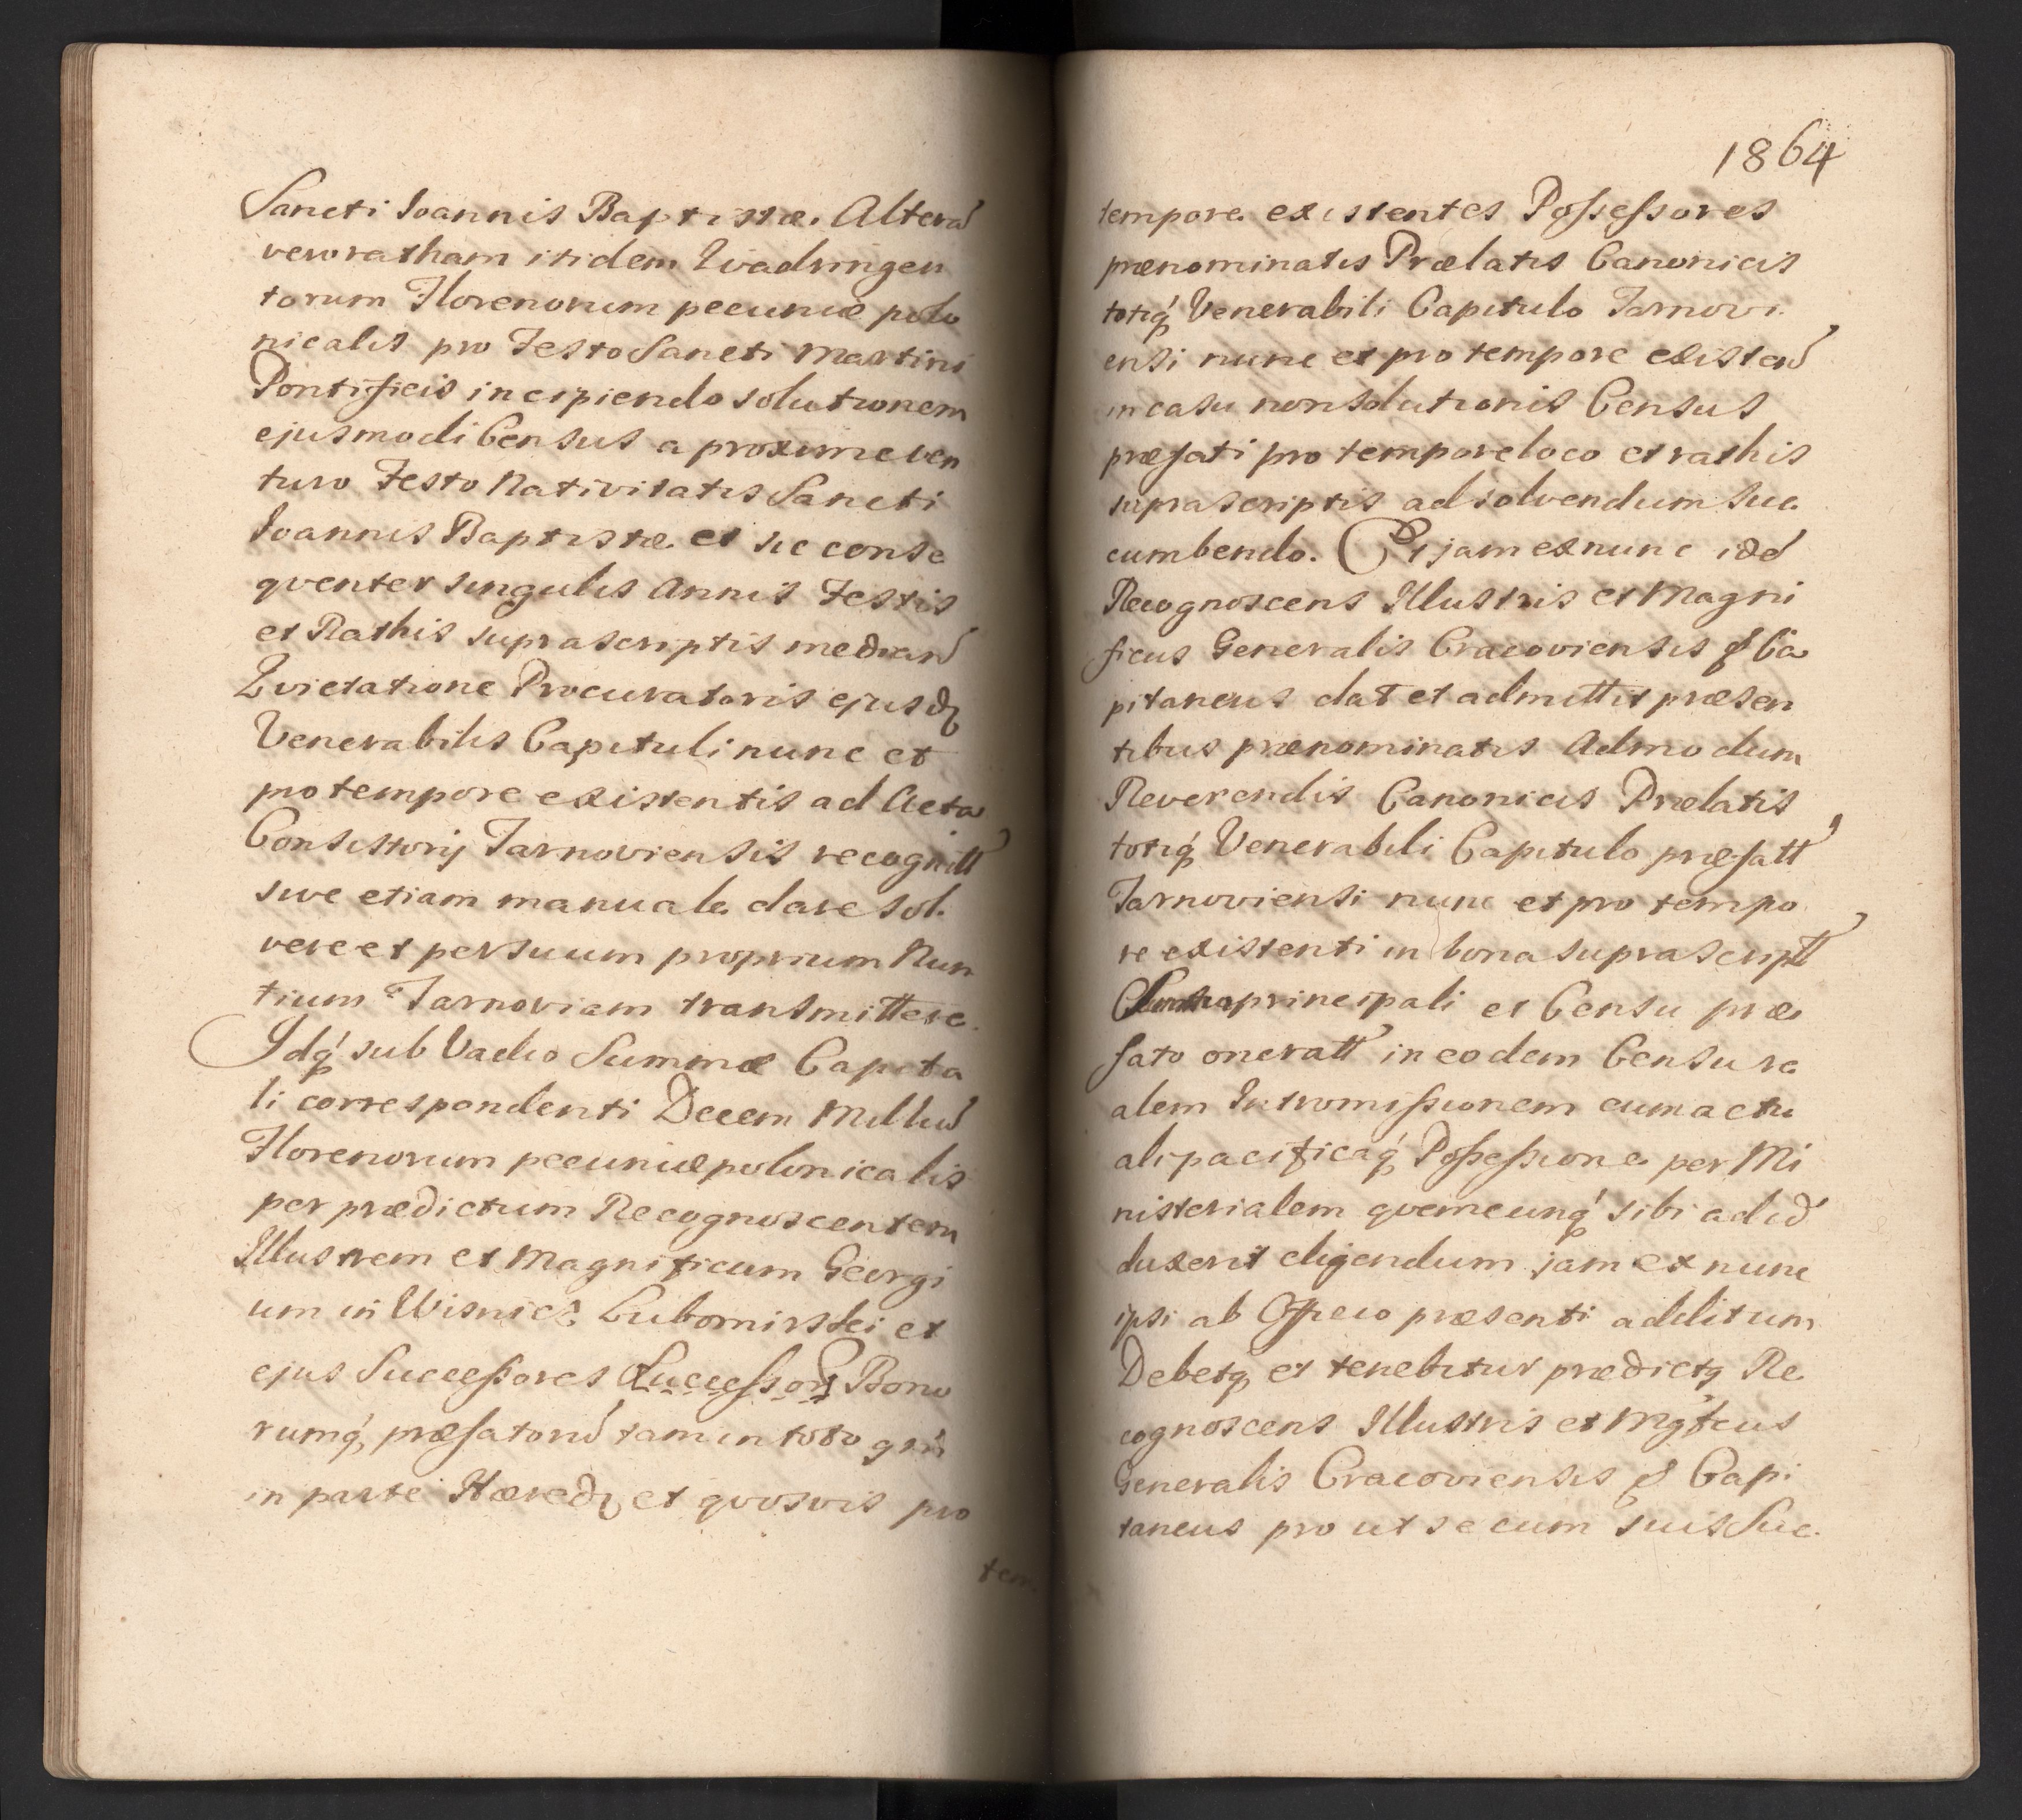 Sancti Joannis Baptistæ. Alterã
vero ratham itidem Qvadringen
torum Florenorum pecuniæ polo
nicalis pro Festo Sancti Martini
Pontificis incipiendo solutionem
ejusmodi Census a proxime ven
turo Festo Nativitatis Sancti
Joannis Baptistæ et sic conse
qventer singulis Annis Festis
et Rathis suprascriptis mediañ
Qvietatione Procuratoris ejusdꝫ
Venerabilis Capituli nunc et
pro tempore existentis ad Acta
Consistorij Tarnoviensis recognitt
sive etiam manuale dare sol.
vere et per suum proprium Nun
tium Tarnoviam transmittere.
Idq́ sub Vadio Summæ Capita
li correspondenti Decem Milliũ
Florenorum pecuniæ polonicalis
per prædictum Recognoscentem
Illustrem et Magnificum Georgi
um in Wisnicz Lubomirski et
ejus Successores Successores Bono
rumq́ præfatorũ tam in toto qm̃
in parte Hæredꝫ et qvosvis pro
tem
1864
tempore existentes Possessores
prænominatis Prælatis Canonicis
totiq́ Venerabili Capitulo Tarnovi.
ensi nunc et pro tempore existeñ
in casu non solutionis Census
præfati pro tempore loco et rathis
suprascriptis ad solvendum suc
cumbendo. Et jam ex nunc idẽ
Recognoscens Illustris et Magni
ficus Generalis Cracoviensis & Ca
pitaneus dat et admittit præsen
tibus prænominatis Admodum
Reverendis Canonicis Prælatis
totiq́ Venerabili Capitulo præfatt
Tarnoviensi nunc et pro tempo
re existenti in bona suprascriptt
principali et Censu præ
fato oneratt in eodem Censu re
alem Intromissionem cum actu
ali pacificaq́ Possessione per Mi
nisterialem qvemcunq́ sibi ad id
duxerit eligendum jam ex nunc
ipsi ab Officio præsenti additum
Debetq, et tenebitur prædictꝫ Re
cognoscens Illustris et Mgfcus
Generalis Cracoviensis & Capi
taneus pro ut se cum suis Suc.